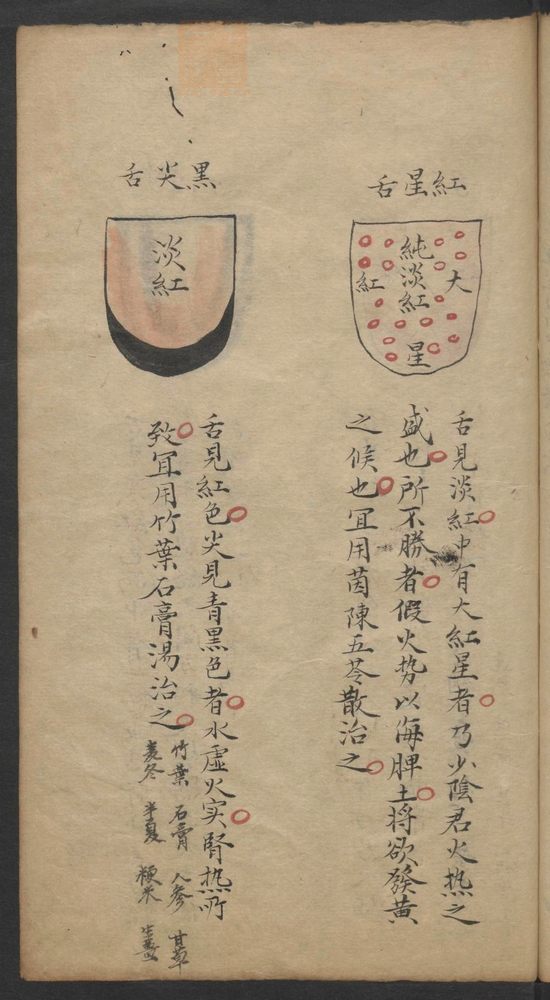 紅星舌
純淡紅
大
紅
星
舌見淡紅中有大紅星者乃少陰君火热之
盛也所不勝者假火势以海脾土将欲發黄
之候也冝用茵陳五苓散治之
黑尖舌
淡紅
舌見紅色尖見青黑色者水虚火实腎热所
致冝用竹葉石膏湯治之
竹葉 石膏 人参 甘草
麦冬 半夏 粳米 生姜